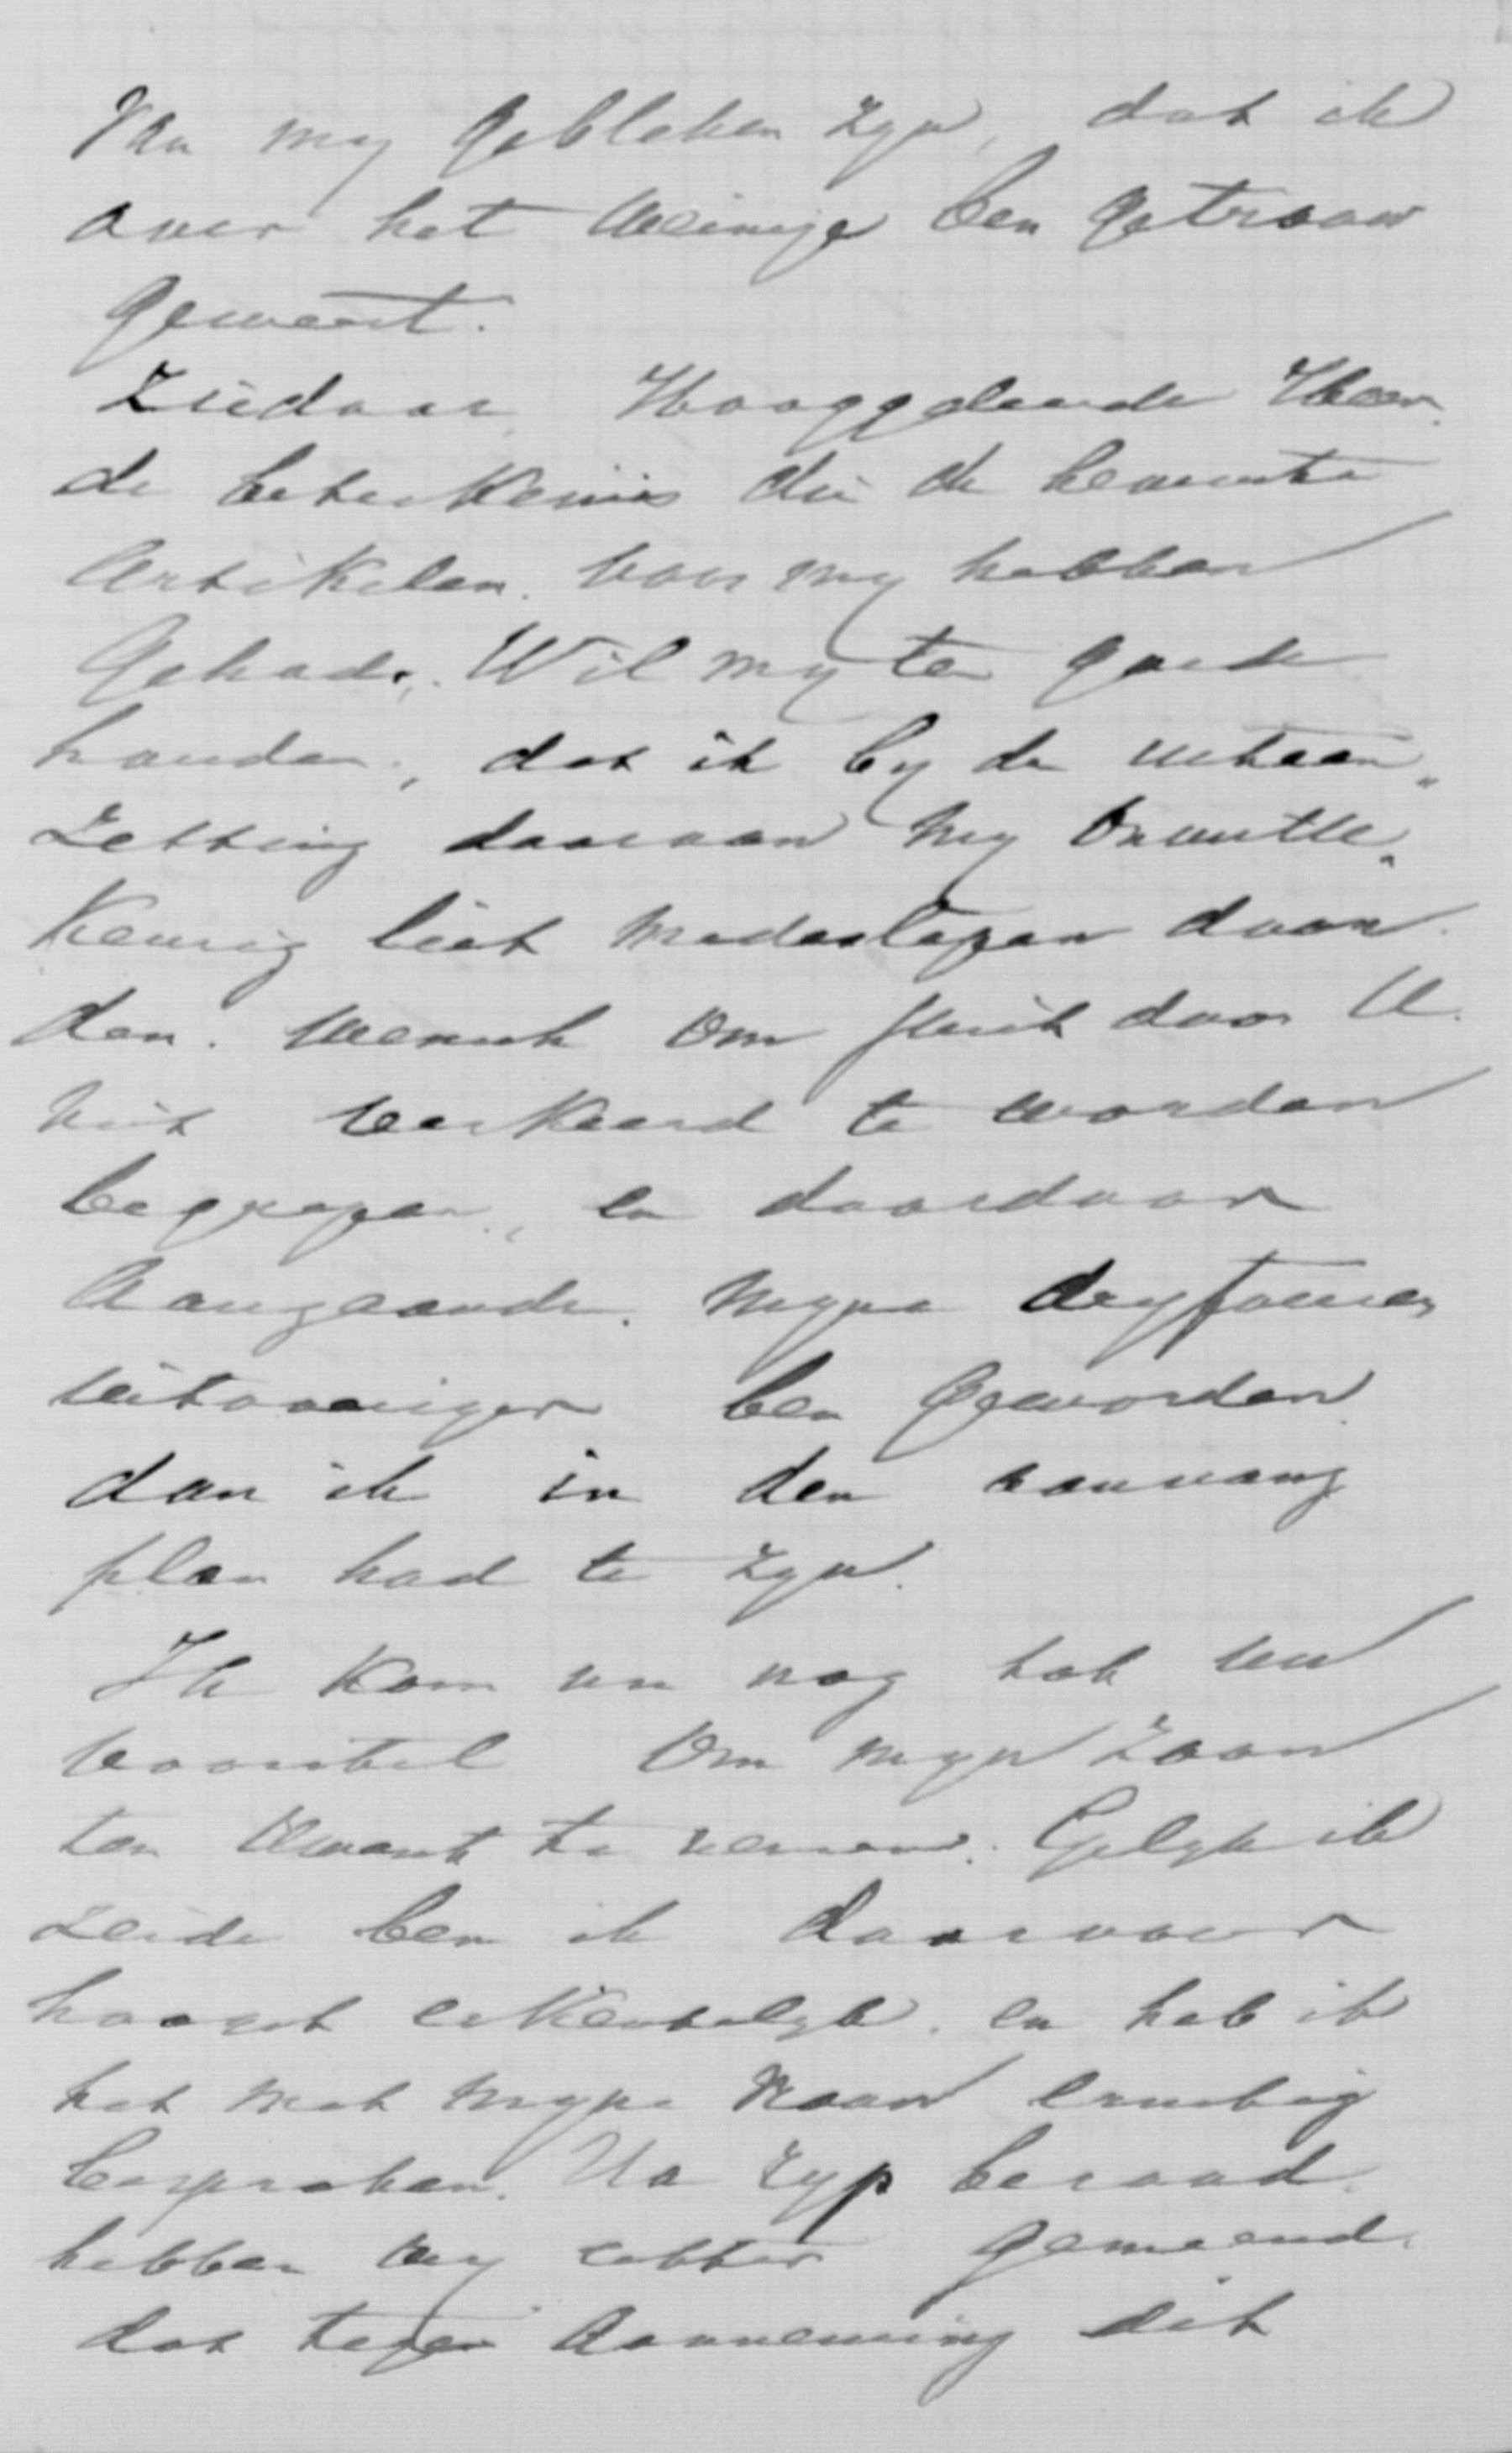 Van my gebleken zyn, dat ik
over het weinige ben getrouw
geweest.
Ziedaar Hooggeleerde Heer
de beteekenis die de bewuste
artikelen. voor my hebben
gehad. Wil my ten goede
houden, dat ik by de uiteen„
zetting daarvan my onwille„
keurig liet medeslepen door
den. wensch om juist door U.
niet verkeerd te worden
begrepen, en daardoor
aangaande. myne dryfveeren
uitvoeriger ben geworden
dan ik in den aanvang
plan had te zyn.
Ik kom nu nog tot uw
voorstel om myn zoon
ten Uwent te nemen. Gelyk ik
zeide ben ik daarvoor
hoogst erkentelyk. en heb ik
het met myne vrouw ernstig
besproken. Na ryp beraad.
hebben wy echter gemeend.
dat tegen aanneming dit